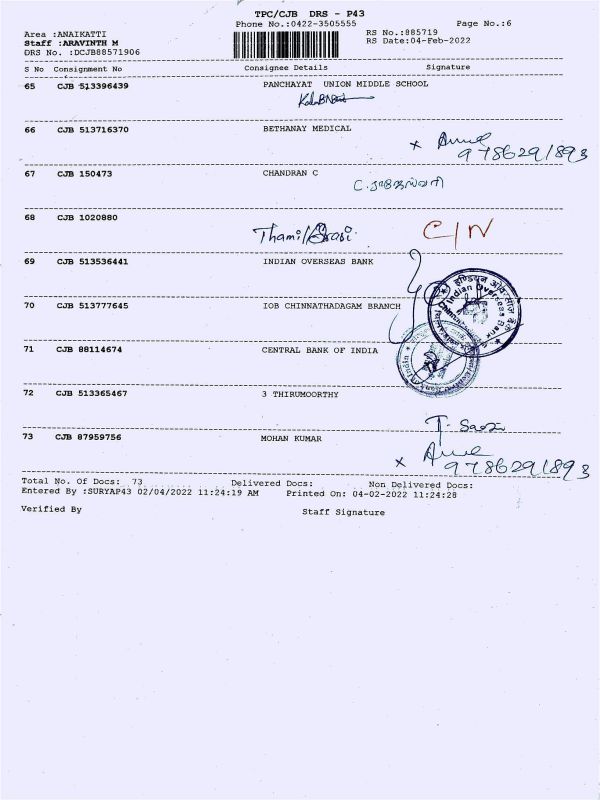 TPC/CJB DRS - P43
Phone No.:0422-3505555
Page No.:6
Area :ANAIKATTI
RS No.:885719
Staff :ARAVINTH M
RS Date:04-Feb-2022
DRS No. :DCJB88571906
S No Consignment No Consignee Details Signature
65 CJB 513396439 PANCHAYAT UNION MIDDLE SCHOOL
66 CJB 513716370 BETHANAY MEDICAL
x
9786291893
67 CJB 150473 CHANDRAN C
68 CJB 1020880
C/N
69 CJB 513536441 INDIAN OVERSEAS BANK
Indian Overseas Bank
70 CJB 513777645 IOB CHINNATHADAGAM BRANCH
71 CJB 88114674 CENTRAL BANK OF INDIA
72 CJB 513365467 3 THIRUMOORTHY
73 CJB 87959756 MOHAN KUMAR
x
9786291893
Total No. Of Docs: 73 Delivered Docs: Non Delivered Docs:
Entered By :SURYAP43 02/04/2022 11:24:19 AM Printed On: 04-02-2022 11:24:28
Verified By Staff Signature